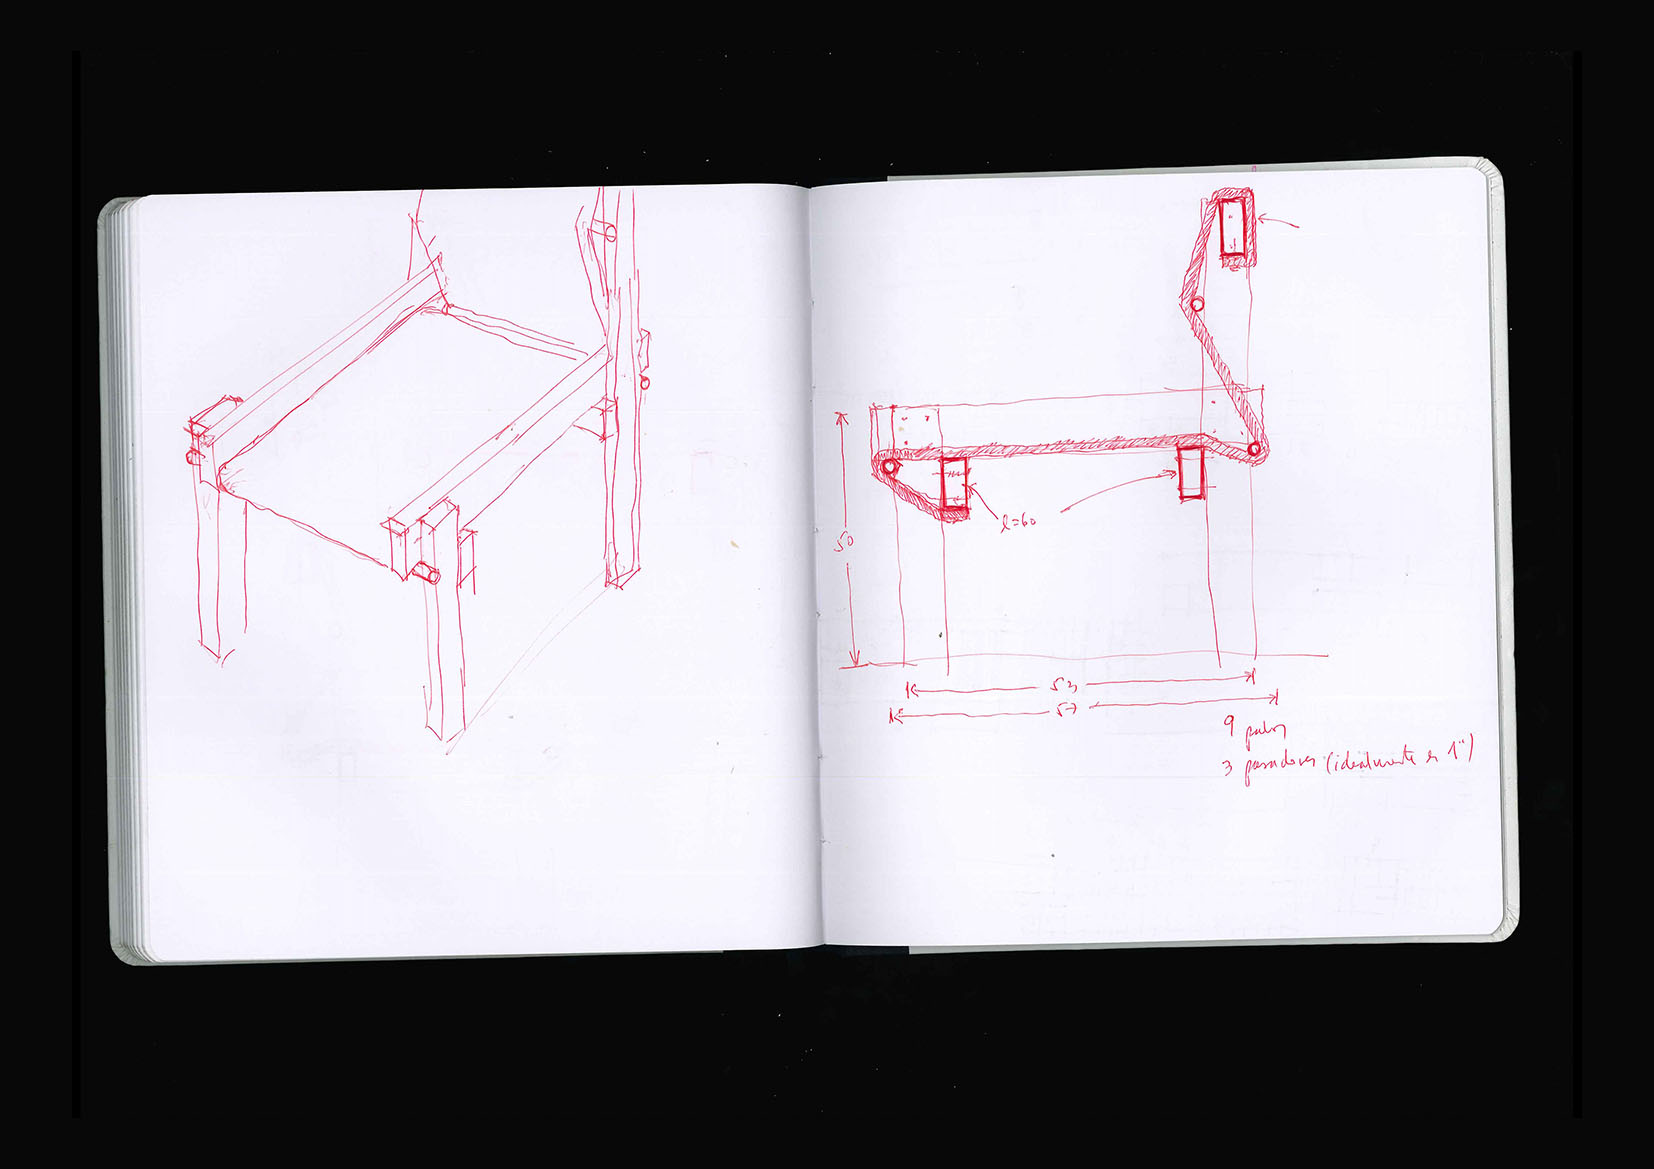 l=60
50
53
57
9 palos
3 pasadores (idealmente en 1")